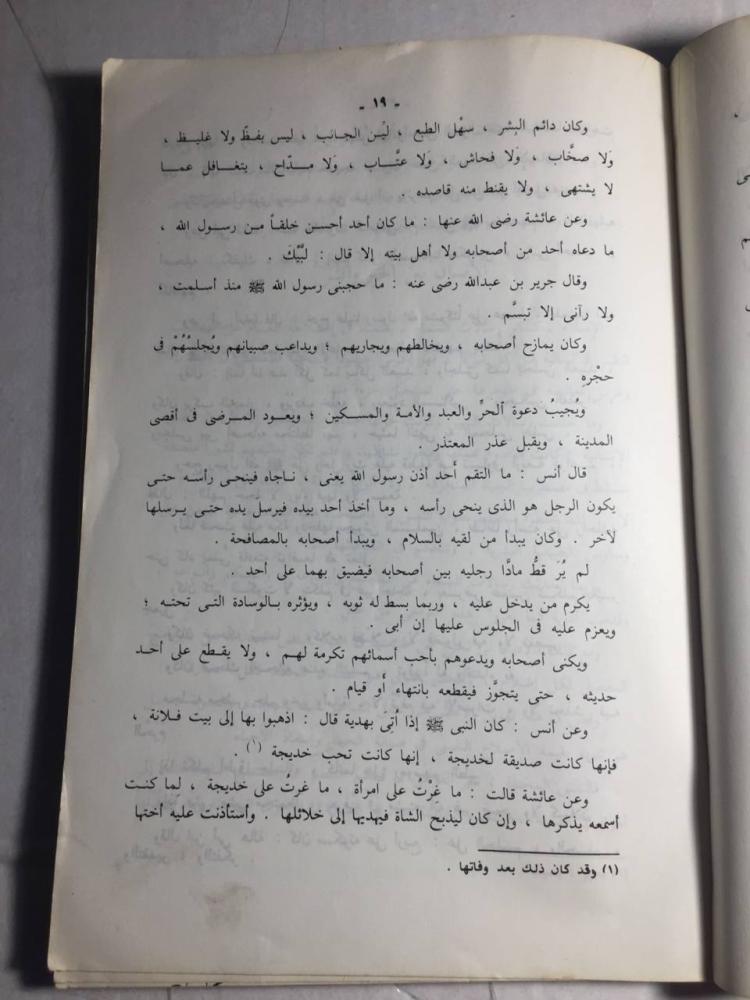 - ١٩ -
وكان دائم البشر ، سهْل الطبع ، ليِّن الجانب ، ليس بفظّ ولا غليظ ،
وَلا صخَّاب ، وَلا فحاش ، ولا عتَّاب ، وَلا مدّاح ، يتغافل عما
لا يشتهى ، ولا يقنط منه قاصده .
وعن عائشة رضى الله عنها : ما كان أحد أحسن خلقاً من رسول الله ،
ما دعاه أحد من أصحابه ولا أهل بيته إلا قال : لبَّيْكَ .
وقال جرير بن عبدالله رضى عنه : ما حجبنى رسول الله ﷺ منذ أسلمت ،
ولا رآنى إلا تبسَّم .
وكان يمازح أصحابه ، ويخالطهم ويجاريهم ؛ ويداعب صبيانهم ويُجلسُهُمْ فى
حجْرهِ .
ويُجيبُ دعوة الحرِّ والعبد والأمة والمسكين ؛ ويعود المرضى فى أقصى
المدينة ، ويقبل عذر المعتذر .
قال أنس : ما التقم أَحد أذن رسول الله يعنى ، ناجاه فينحى رأسه حتى
يكون الرجل هو الذى ينحى رأسه ، وما أخذ أحد بيده فيرسل يده حتى يرسلها
لآخر . وكان يبدأ من لقيه بالسلام ، ويبدأ أصحابه بالمصافحة .
لم يُرَ قطُّ مادًّا رجليه بين أصحابه فيضيق بهما على أحد .
يكرم من يدخل عليه ، وربما بسط له ثوبه ، ويؤثره بالوسادة التى تحته ؛
ويعزم عليه فى الجلوس عليها إن أبى .
ويكنى أصحابه ويدعوهم بأحب أسمائهم تكرمة لهم ، ولا يقطع على أحد
حديثه ، حتى يتجوَّز فيقطعه بانتهاء أَو قيام .
وعن أنس : كان النبى ﷺ إذا أُتِىَ بهدية قال : اذهبوا بها إلى بيت فلانة ،
فإنها كانت صديقة لخديجة ، إنها كانت تحب خديجة (١) .
وعن عائشة قالت : ما غِرْتُ على امرأة ، ما غرتُ على خديجة ، لِما كنت
أسمعه يذكرها ، وإن كان ليذبَح الشاة فيهديها إلى خلائلها . وأستأذنت عليه أختها
(١) وقد كان ذلك بعد وفاتها .